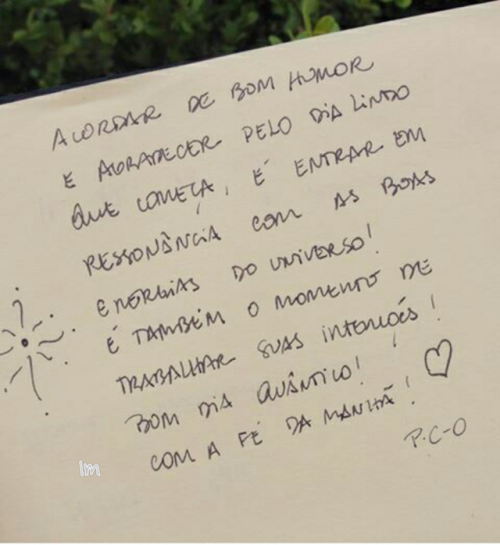 ACORDAR DE BOM HUMOR
E AGRADECER PELO DIA LINDO
QUE COMEÇA, É ENTRAR EM
RESSONÂNCIA COM AS BOAS
ENERGIAS DO UNIVERSO!
É TAMBÉM O MOMENTO DE
TRABALHAR SUAS INTENÇÕES!
BOM DIA QUÂNTICO!
COM A FÉ DA MANHÃ!
P.C-O
lm